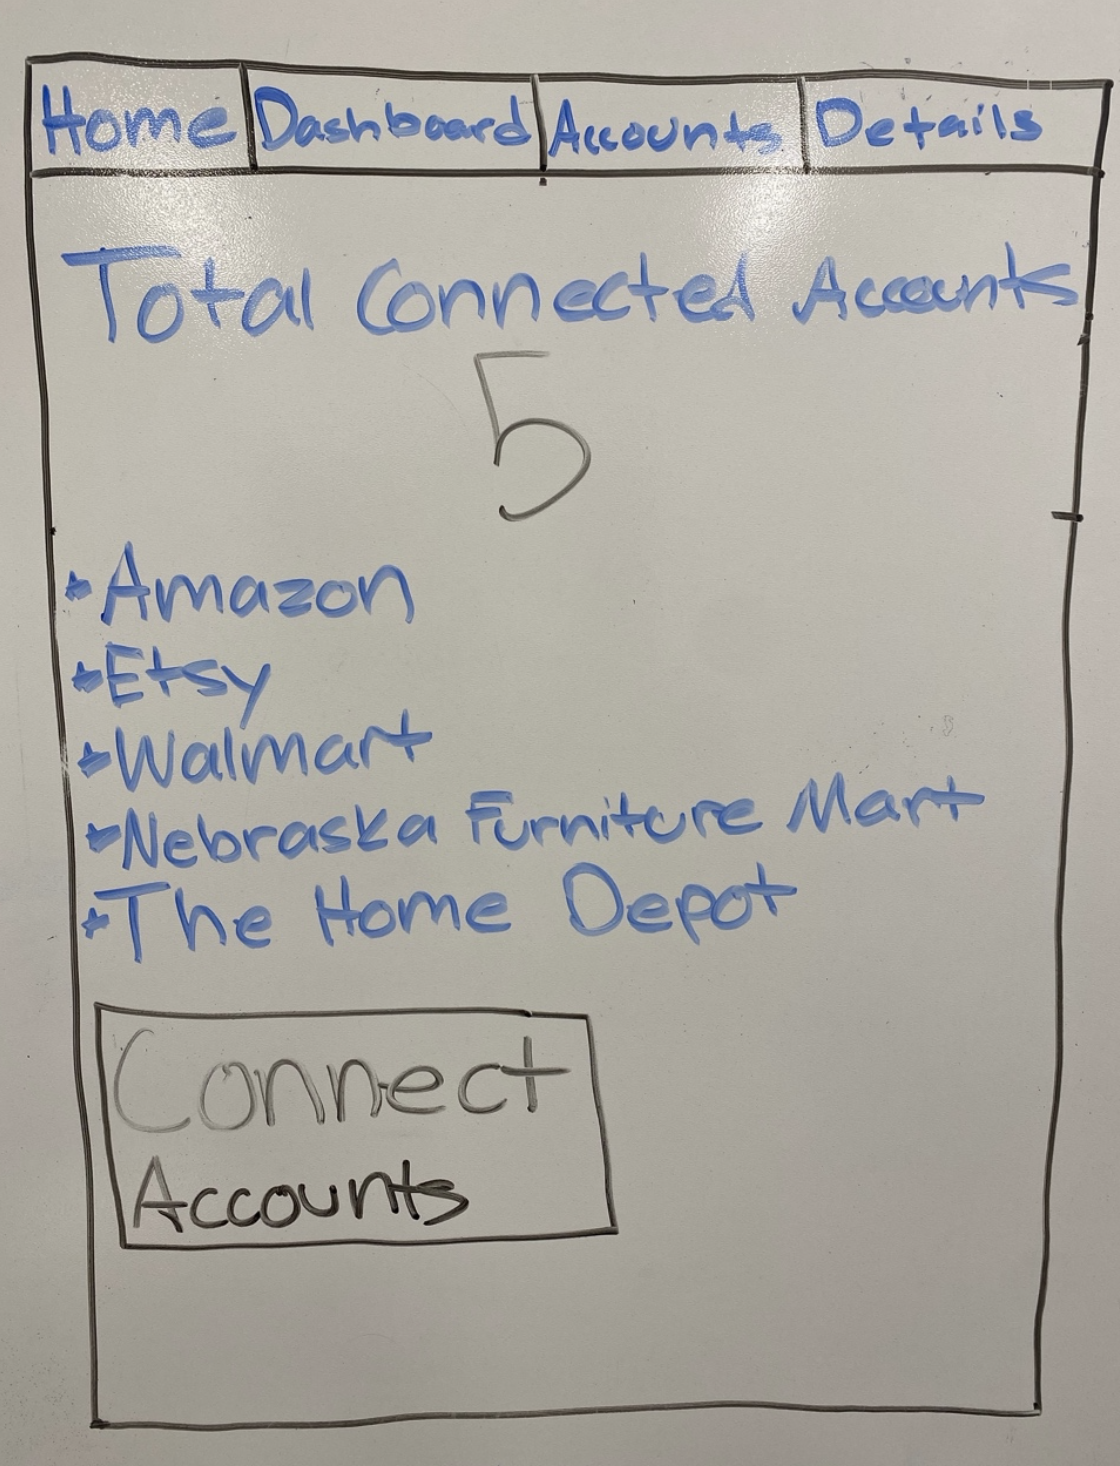 Home Dashboard Accounts Details
Total Connected Accounts
5
Amazon
Etsy
Walmart
Nebraska Furniture Mart
The Home Depot
Connect
Accounts